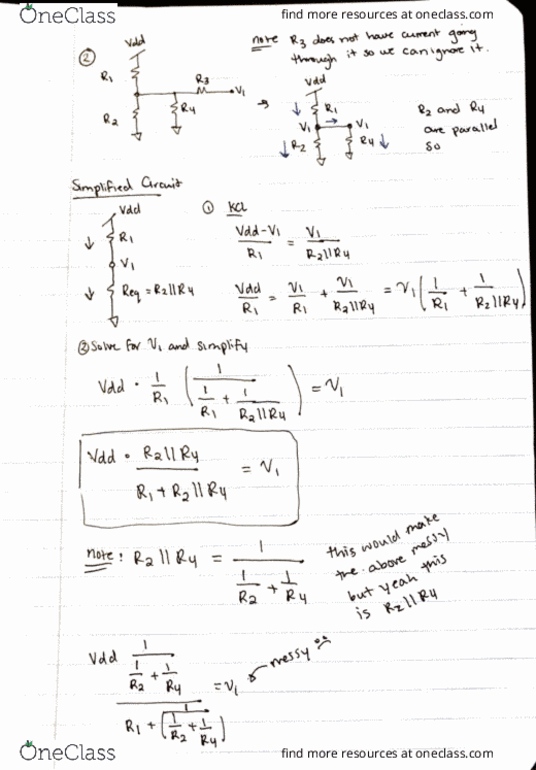 OneClass
find more resources at oneclass.com
②
Vdd
R1
R2
R3
R4
V1
note R3 does not have current going
through it so we can ignore it.
→
Vdd
R1
V1
V1
R2
R4
R2 and R4
are parallel
so
Simplified Circuit
Vdd
R1
V1
Req = R2||R4
① KCL
Vdd-V1 / R1 = V1 / R2||R4
Vdd / R1 = V1 / R1 + V1 / R2||R4 = V1 ( 1 / R1 + 1 / R2||R4 )
② Solve for V1 and simplify
Vdd · 1 / R1 ( 1 / ( 1 / R1 + 1 / R2||R4 ) ) = V1
Vdd · R2||R4 / R1 + R2||R4 = V1
note: R2||R4 = 1 / ( 1 / R2 + 1 / R4 )
this would make
the above messy
but yeah this
is R2||R4
Vdd 1 / ( 1 / R2 + 1 / R4 ) / R1 + ( 1 / ( 1 / R2 + 1 / R4 ) ) = V1
messy
OneClass
find more resources at oneclass.com